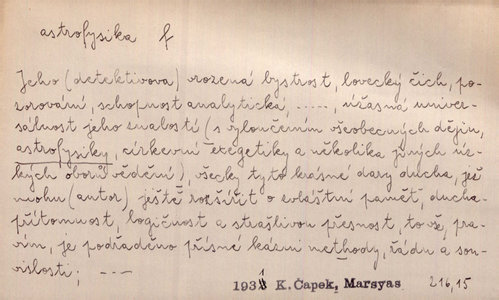 astrofysika f
Jeho (detektivova) vrozená bystrost, lovecký čich, po-
zorování, schopnost analytická, -----, úžasná univer-
sálnost jeho znalostí (s vyloučením všeobecných dějin,
astrofysiky, církevní exegetiky a několika jiných úz-
kých oborů vědění), všecky tyto krásné dary ducha, jež
mohu (autor) ještě rozšířit o zvláštní paměť, ducha-
přítomnost, logičnost a strašlivou přesnost, to vše, pra-
vím, je podřaděno přísné kázni methody, řádu a sou-
vislosti; ---
1931 K. Čapek, Marsyas 216,15